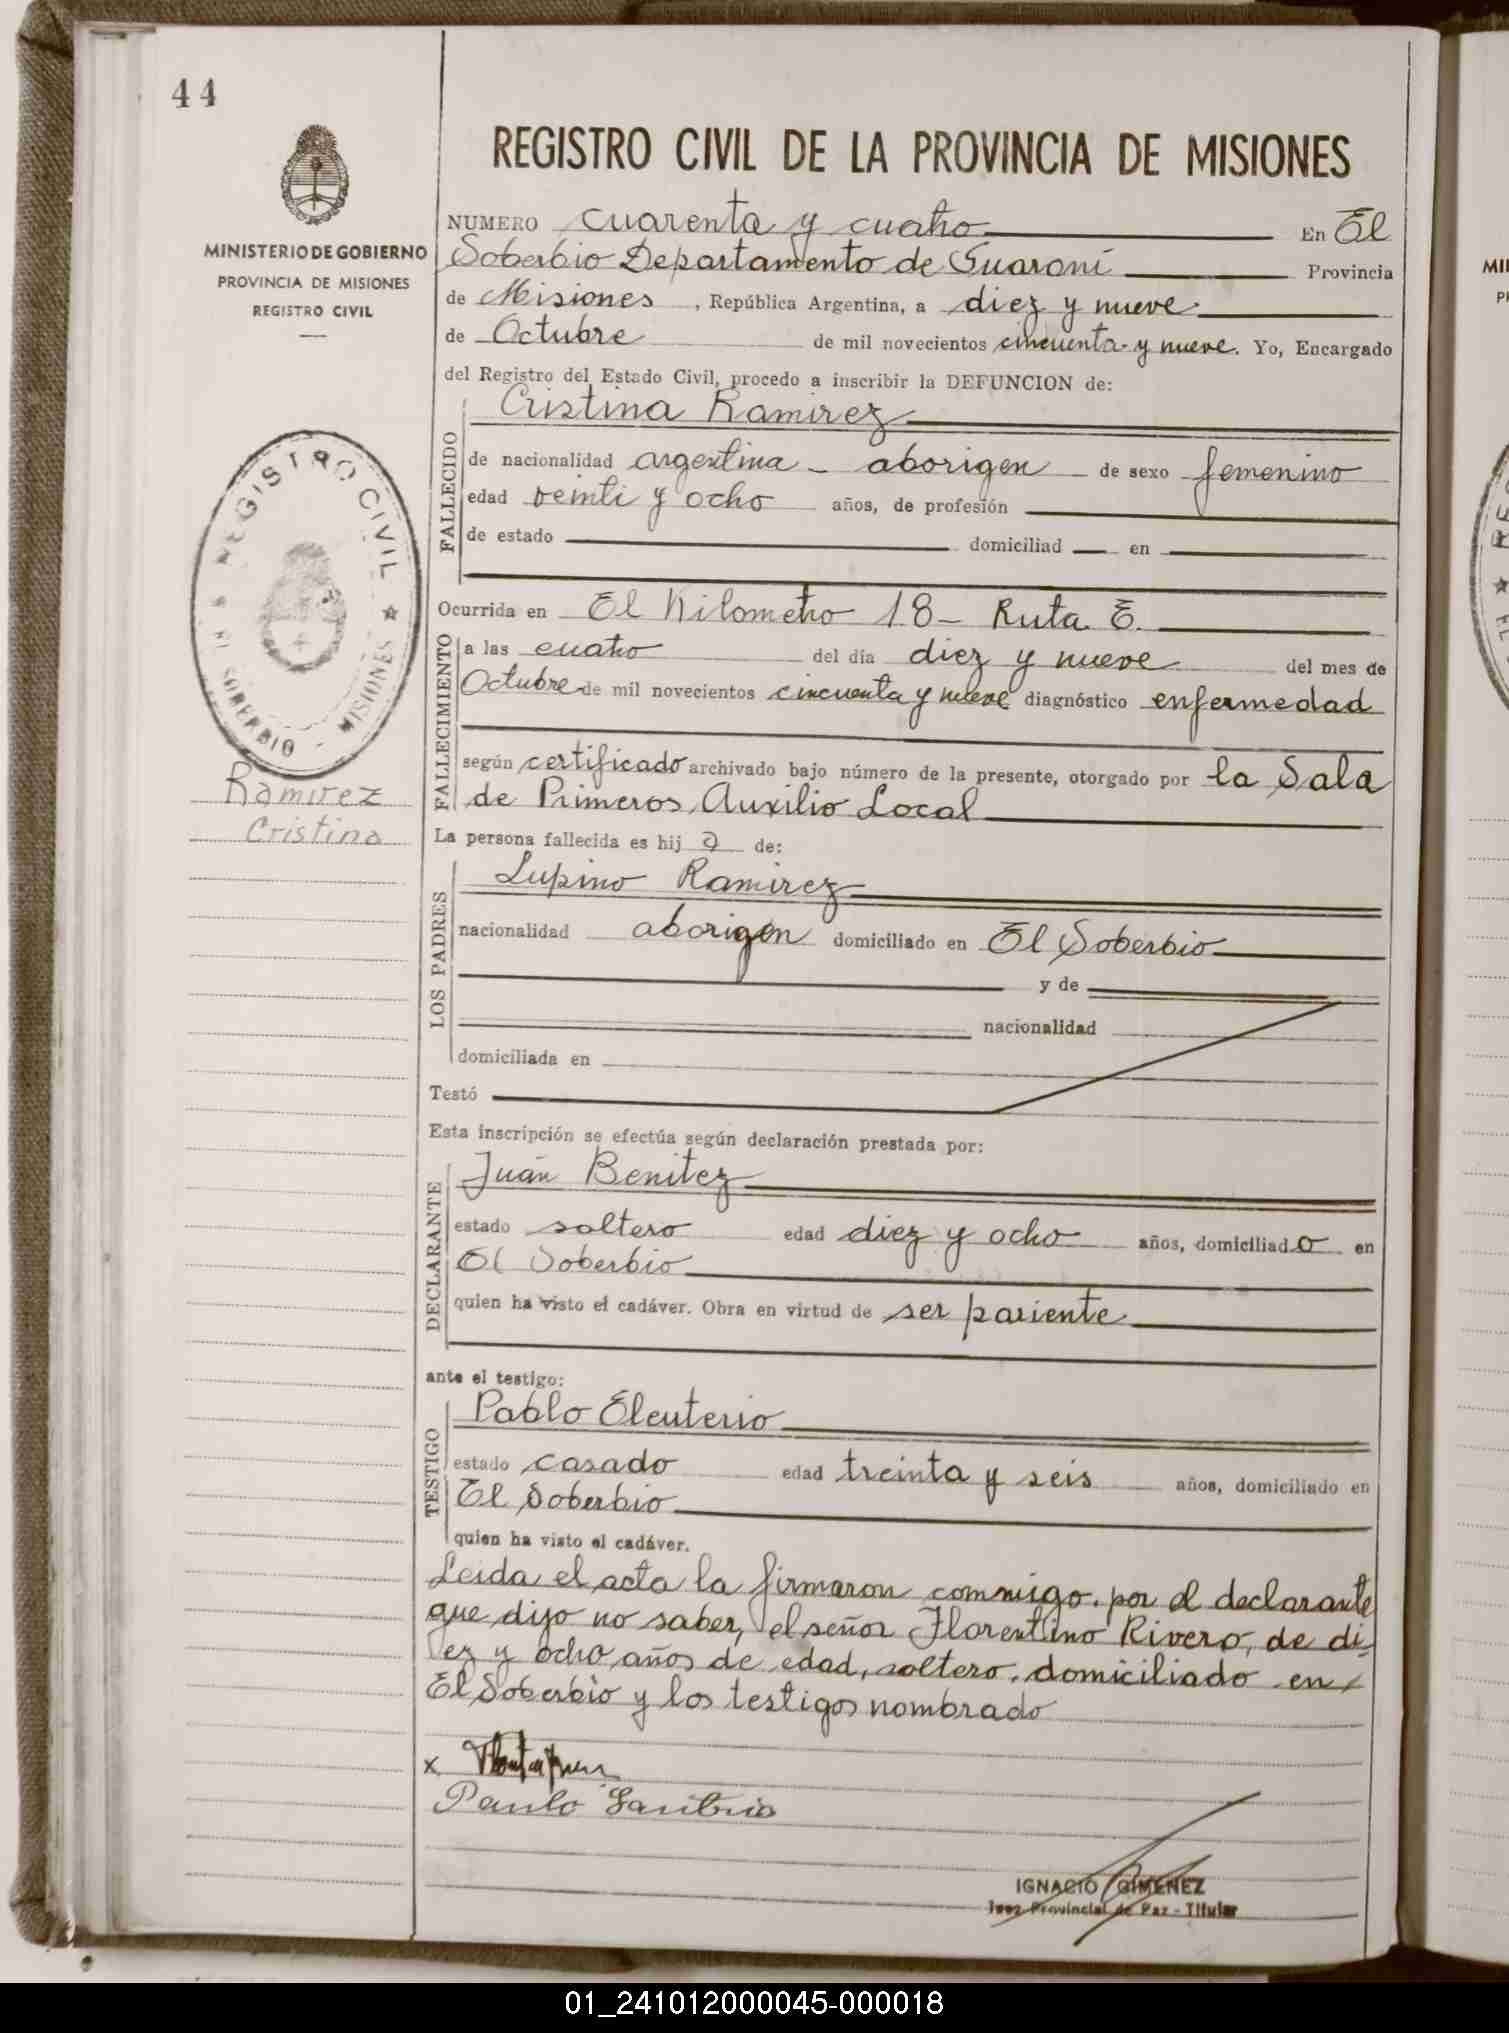 44
MINISTERIO DE GOBIERNO
PROVINCIA DE MISIONES
REGISTRO CIVIL
REGISTRO CIVIL
EL SOBERBIO - MISIONES
Ramirez
Cristina
REGISTRO CIVIL DE LA PROVINCIA DE MISIONES
NUMERO cuarenta y cuatro En El
Soberbio Departamento de Guaraní Provincia
de Misiones , República Argentina, a diez y nueve
de Octubre de mil novecientos cincuenta y nueve. Yo, Encargado
del Registro del Estado Civil, procedo a inscribir la DEFUNCION de:
Cristina Ramirez
FALLECIDO
de nacionalidad argentina - aborigen - de sexo femenino
edad veinti y ocho años, de profesión
de estado domiciliad en
Ocurrida en El Kilometro 18 - Ruta E.
FALLECIMIENTO
a las cuatro del día diez y nueve del mes de
Octubre de mil novecientos cincuenta y nueve diagnóstico enfermedad
según certificado archivado bajo número de la presente, otorgado por la Sala
de Primeros Auxilio Local
La persona fallecida es hij a de:
LOS PADRES
Lupino Ramirez
nacionalidad aborigen domiciliado en El Soberbio
y de
nacionalidad
domiciliada en
Testó
Esta inscripción se efectúa según declaración prestada por:
DECLARANTE
Juan Benitez
estado soltero edad diez y ocho años, domiciliado en
El Soberbio
quien ha visto el cadáver. Obra en virtud de ser pariente
ante el testigo:
TESTIGO
Pablo Eleuterio
estado casado edad treinta y seis años, domiciliado en
El Soberbio
quien ha visto el cadáver.
Leida el acta la firmaron conmigo. por el declarante
que dijo no saber, el señor Florentino Rivero, de di-
ez y ocho años de edad, soltero. domiciliado en
El Soberbio y los testigos nombrado
x
IGNACIO GIMENEZ
Juez Provincial de Paz - Titular
01_241012000045-000018